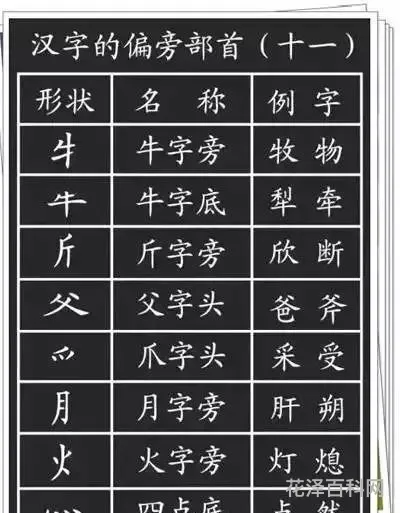 汉字的偏旁部首（十一）
形状 名称 例字
牜 牛字旁 牧 物
牛 牛字底 犁 牵
斤 斤字旁 欣 断
父 父字头 爸 斧
爫 爪字头 采 受
月 月字旁 肝 朔
火 火字旁 灯 熄
灬 四点底 点 然
花泽百科网